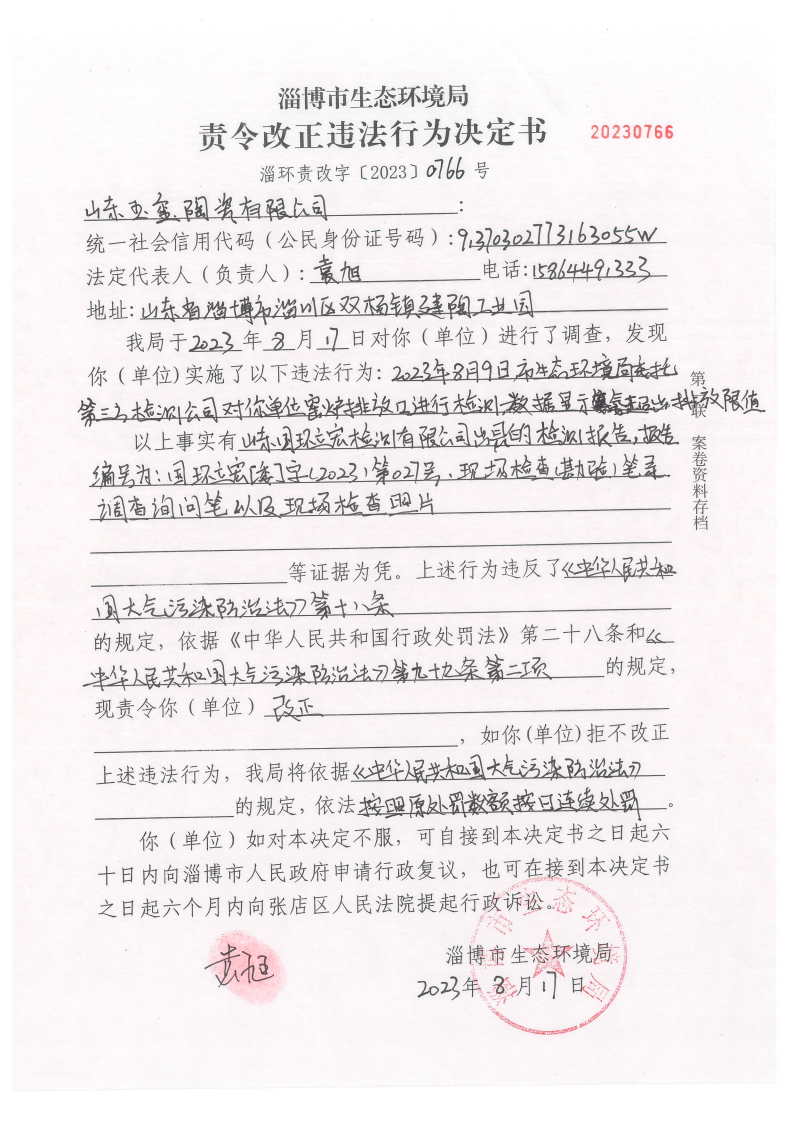 淄博市生态环境局
责令改正违法行为决定书
20230766
淄环责改字〔2023〕0766号
山东玉玺陶瓷有限公司：
统一社会信用代码（公民身份证号码）：91370302773163055W
法定代表人（负责人）：袁旭 电话：15864491333
地址：山东省淄博市淄川区双杨镇建陶工业园
我局于2023年8月17日对你（单位）进行了调查，发现
你（单位）实施了以下违法行为：2023年8月9日市生态环境局委托
第三方检测公司对你单位窑炉排放口进行检测，数据显示 超出排放限值
以上事实有山东国环立宏检测有限公司出具的检测报告，报告
编号为：国环立宏[海]字（2023）第027号、现场检查（勘验）笔录
调查询问笔以及现场检查照片
等证据为凭。上述行为违反了《中华人民共和
国大气污染防治法》第十八条
的规定，依据《中华人民共和国行政处罚法》第二十八条和《
中华人民共和国大气污染防治法》第九十九条第二项的规定，
现责令你（单位）改正
，如你（单位）拒不改正
上述违法行为，我局将依据《中华人民共和国大气污染防治法》
的规定，依法按照原处罚数额按日连续处罚。
你（单位）如对本决定不服，可自接到本决定书之日起六
十日内向淄博市人民政府申请行政复议，也可在接到本决定书
之日起六个月内向张店区人民法院提起行政诉讼。
袁旭
淄博市生态环境局
2023年8月17日
淄博市生态环境局
第 联 案卷资料存档